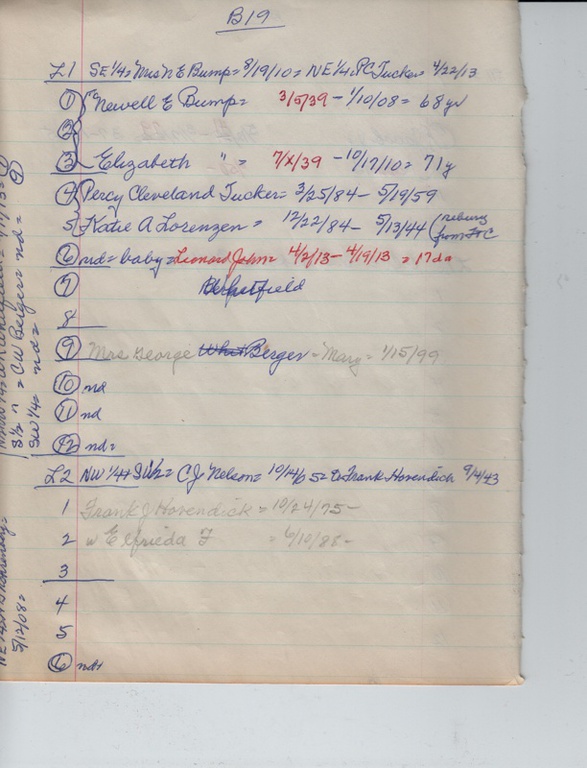 B19
L1 SE 1/4= Mrs N E Bump= 8/19/10= NE 1/4 PC Tucker= 4/22/13
1 Newell E Bump= 3/5/39 - 1/10/08= 68yr
2
3 Elizabeth " = 7/X/39 - 10/17/10= 71y
4 Percy Cleveland Tucker= 3/25/84 - 5/19/59
5 Katie A Lorenzen = 12/22/84 - 5/13/44 (reburg from
6 nd= baby= Leonard John= 4/2/13 - 4/19/13 = 17da
7
8
9 Mrs George Berger= Mary= 1/15/99
10 nd
11 nd
12 nd=
L2 NW 1/4+ S 1/2= CJ Nelson= Frank Hovendick 9/4/43
1 Frank J Hovendick = 10/24/75-
2 w Elfrieda F = 6/10/88-
3
4
5
6 nd+
S 1/2 = CW Berger= nd=
SW 1/4= nd=
5/12/08=